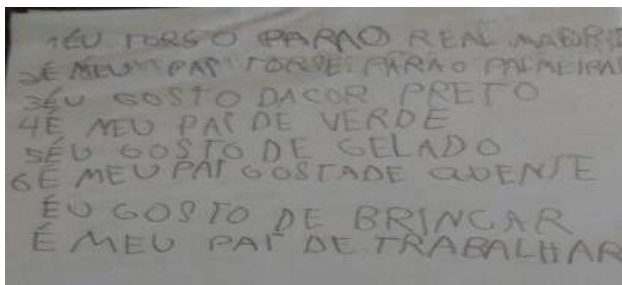 1ÉU TORSO PARAO REAL MADRID
2É MEU PAI TORSE PARAO PALMEIRAS
3ÉU GOSTO DACOR PRETO
4É MEU PAI DE VERDE
5ÉU GOSTO DE GELADO
6É MEU PAI GOSTADE QUENTE
ÉU GOSTO DE BRINCAR
É MEU PAI DE TRABALHAR